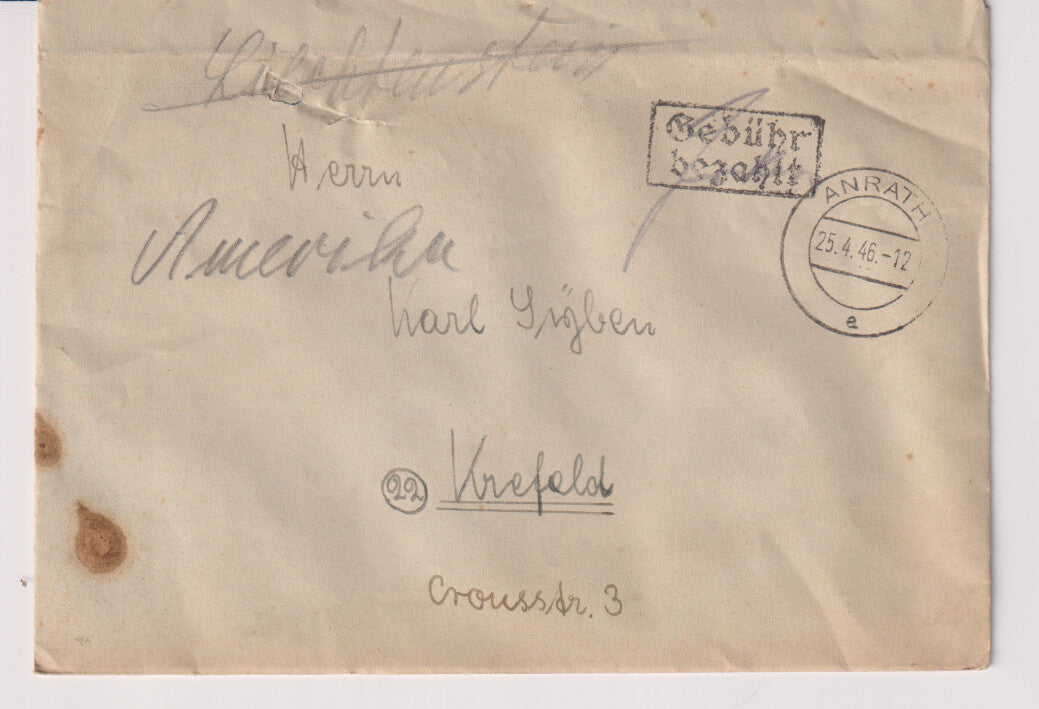 Liechtenstein
Gebühr
bezahlt
Herrn
ANRATH
25.4.46.-12
a
Amerika
Karl Sijben
22 Krefeld
Crousstr. 3